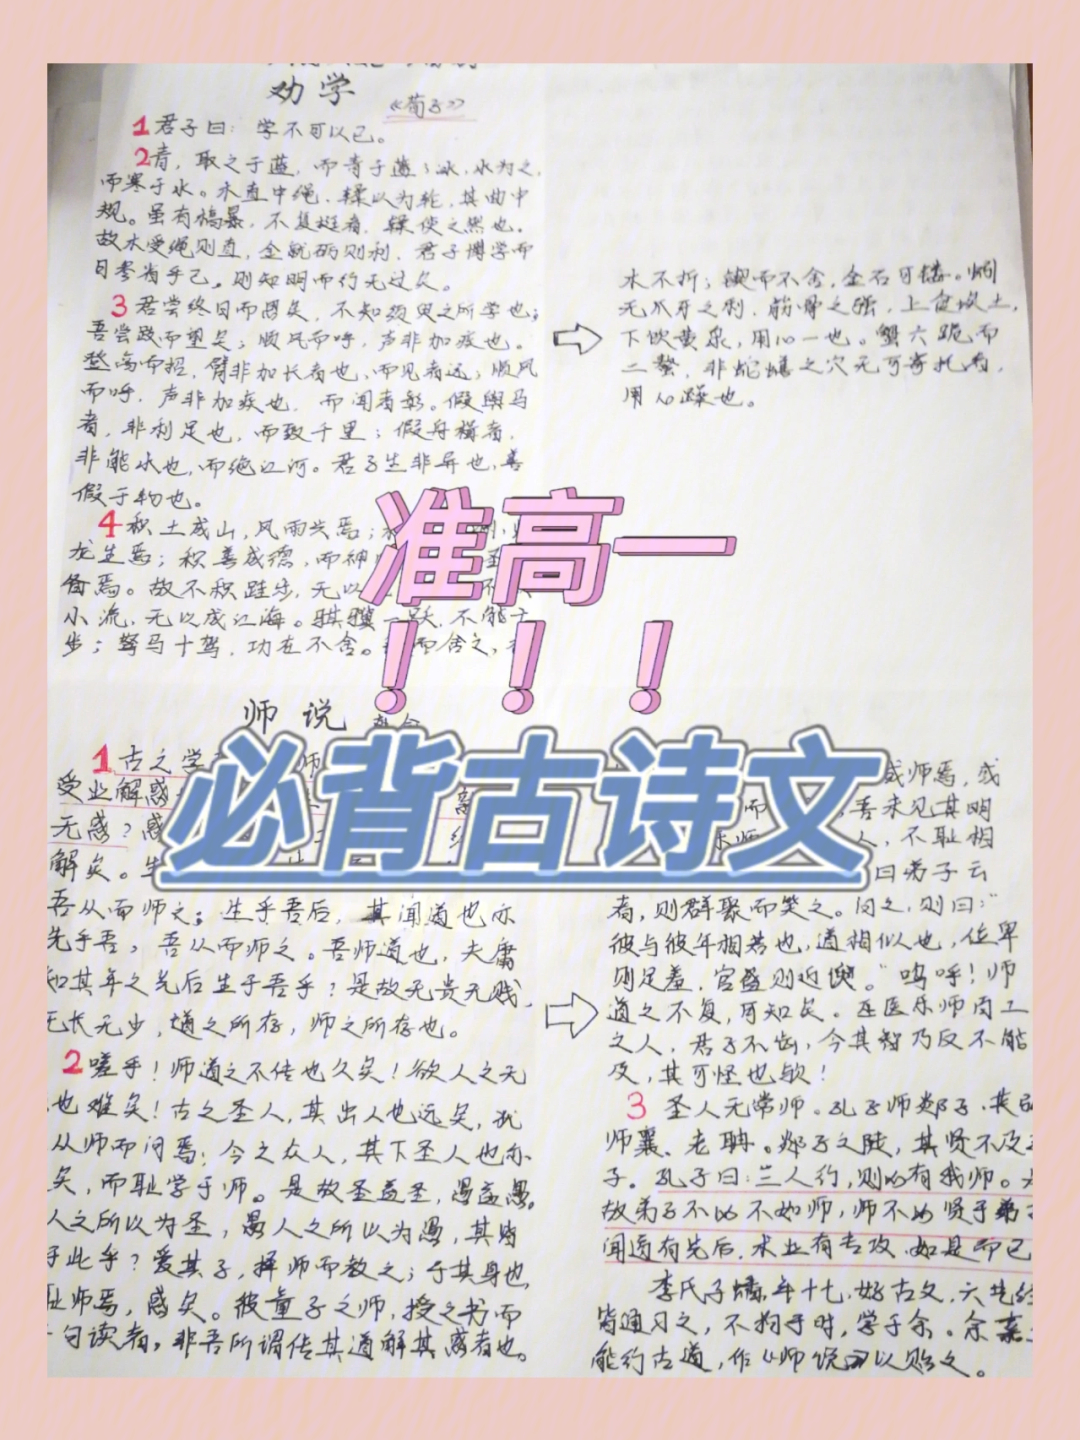 劝学
《荀子》
1君子曰：学不可以已。
2青，取之于蓝，而青于蓝；冰，水为之，
而寒于水。木直中绳，輮以为轮，其曲中
规。虽有槁暴，不复挺者，輮使之然也。
故木受绳则直，金就砺则利，君子博学而
日参省乎己，则知明而行无过矣。
3君尝终日而思矣，不知须臾之所学也；
吾尝跂而望矣；顺风而呼，声非加疾也。
登高而招，臂非加长者也，而见者远；顺风
而呼，声非加疾也，而闻者彰。假舆马
者，非利足也，而致千里；假舟楫者，
非能水也，而绝江河。君子生非异也，善
假于物也。
4积土成山，风雨兴焉；
龙生焉；积善成德，而神
备焉。故不积跬步，无以
小流，无以成江海。骐骥一跃，不能十
步；驽马十驾，功在不舍。而舍之，
木不折；锲而不舍，金石可镂。蚓
无爪牙之利，筋骨之强，上食埃土，
下饮黄泉，用心一也。蟹六跪而
二螯，非蛇鳝之穴无可寄托者，
用心躁也。
准高一
！！！
师说
必背古诗文
1古之学 师
受业解惑
无惑？惑
解矣。生
吾从而师之；生乎吾后，其闻道也亦
先乎吾，吾从而师之。吾师道也，夫庸
知其年之先后生于吾乎？是故无贵无贱，
无长无少，道之所存，师之所存也。
2嗟乎！师道之不传也久矣！欲人之无
也难矣！古之圣人，其出人也远矣，犹
从师而问焉；今之众人，其下圣人也亦
矣，而耻学于师。是故圣益圣，愚益愚。
人之所以为圣，愚人之所以为愚，其皆
于此乎？爱其子，择师而教之；于其身也，
耻师焉，惑矣。彼童子之师，授之书而
句读者，非吾所谓传其道解其惑者也。
或师焉，或
而 吾未见其明
人，不耻相
曰弟子云
者，则群聚而笑之。问之，则曰：“
彼与彼年相若也，道相似也，位卑
则足羞，官盛则近谀。”呜呼！师
道之不复，可知矣。巫医乐师百工
之人，君子不齿，今其智乃反不能
及，其可怪也欤！
3圣人无常师。孔子师郯子、苌弘
师襄、老聃。郯子之徒，其贤不及
子。孔子曰：三人行，则必有我师。
故弟子不必不如师，师不必贤于弟子
闻道有先后，术业有专攻，如是而已
李氏子蟠，年十七，好古文，六艺经
皆通习之，不拘于时，学于余。余嘉
能行古道，作《师说》以贻之。